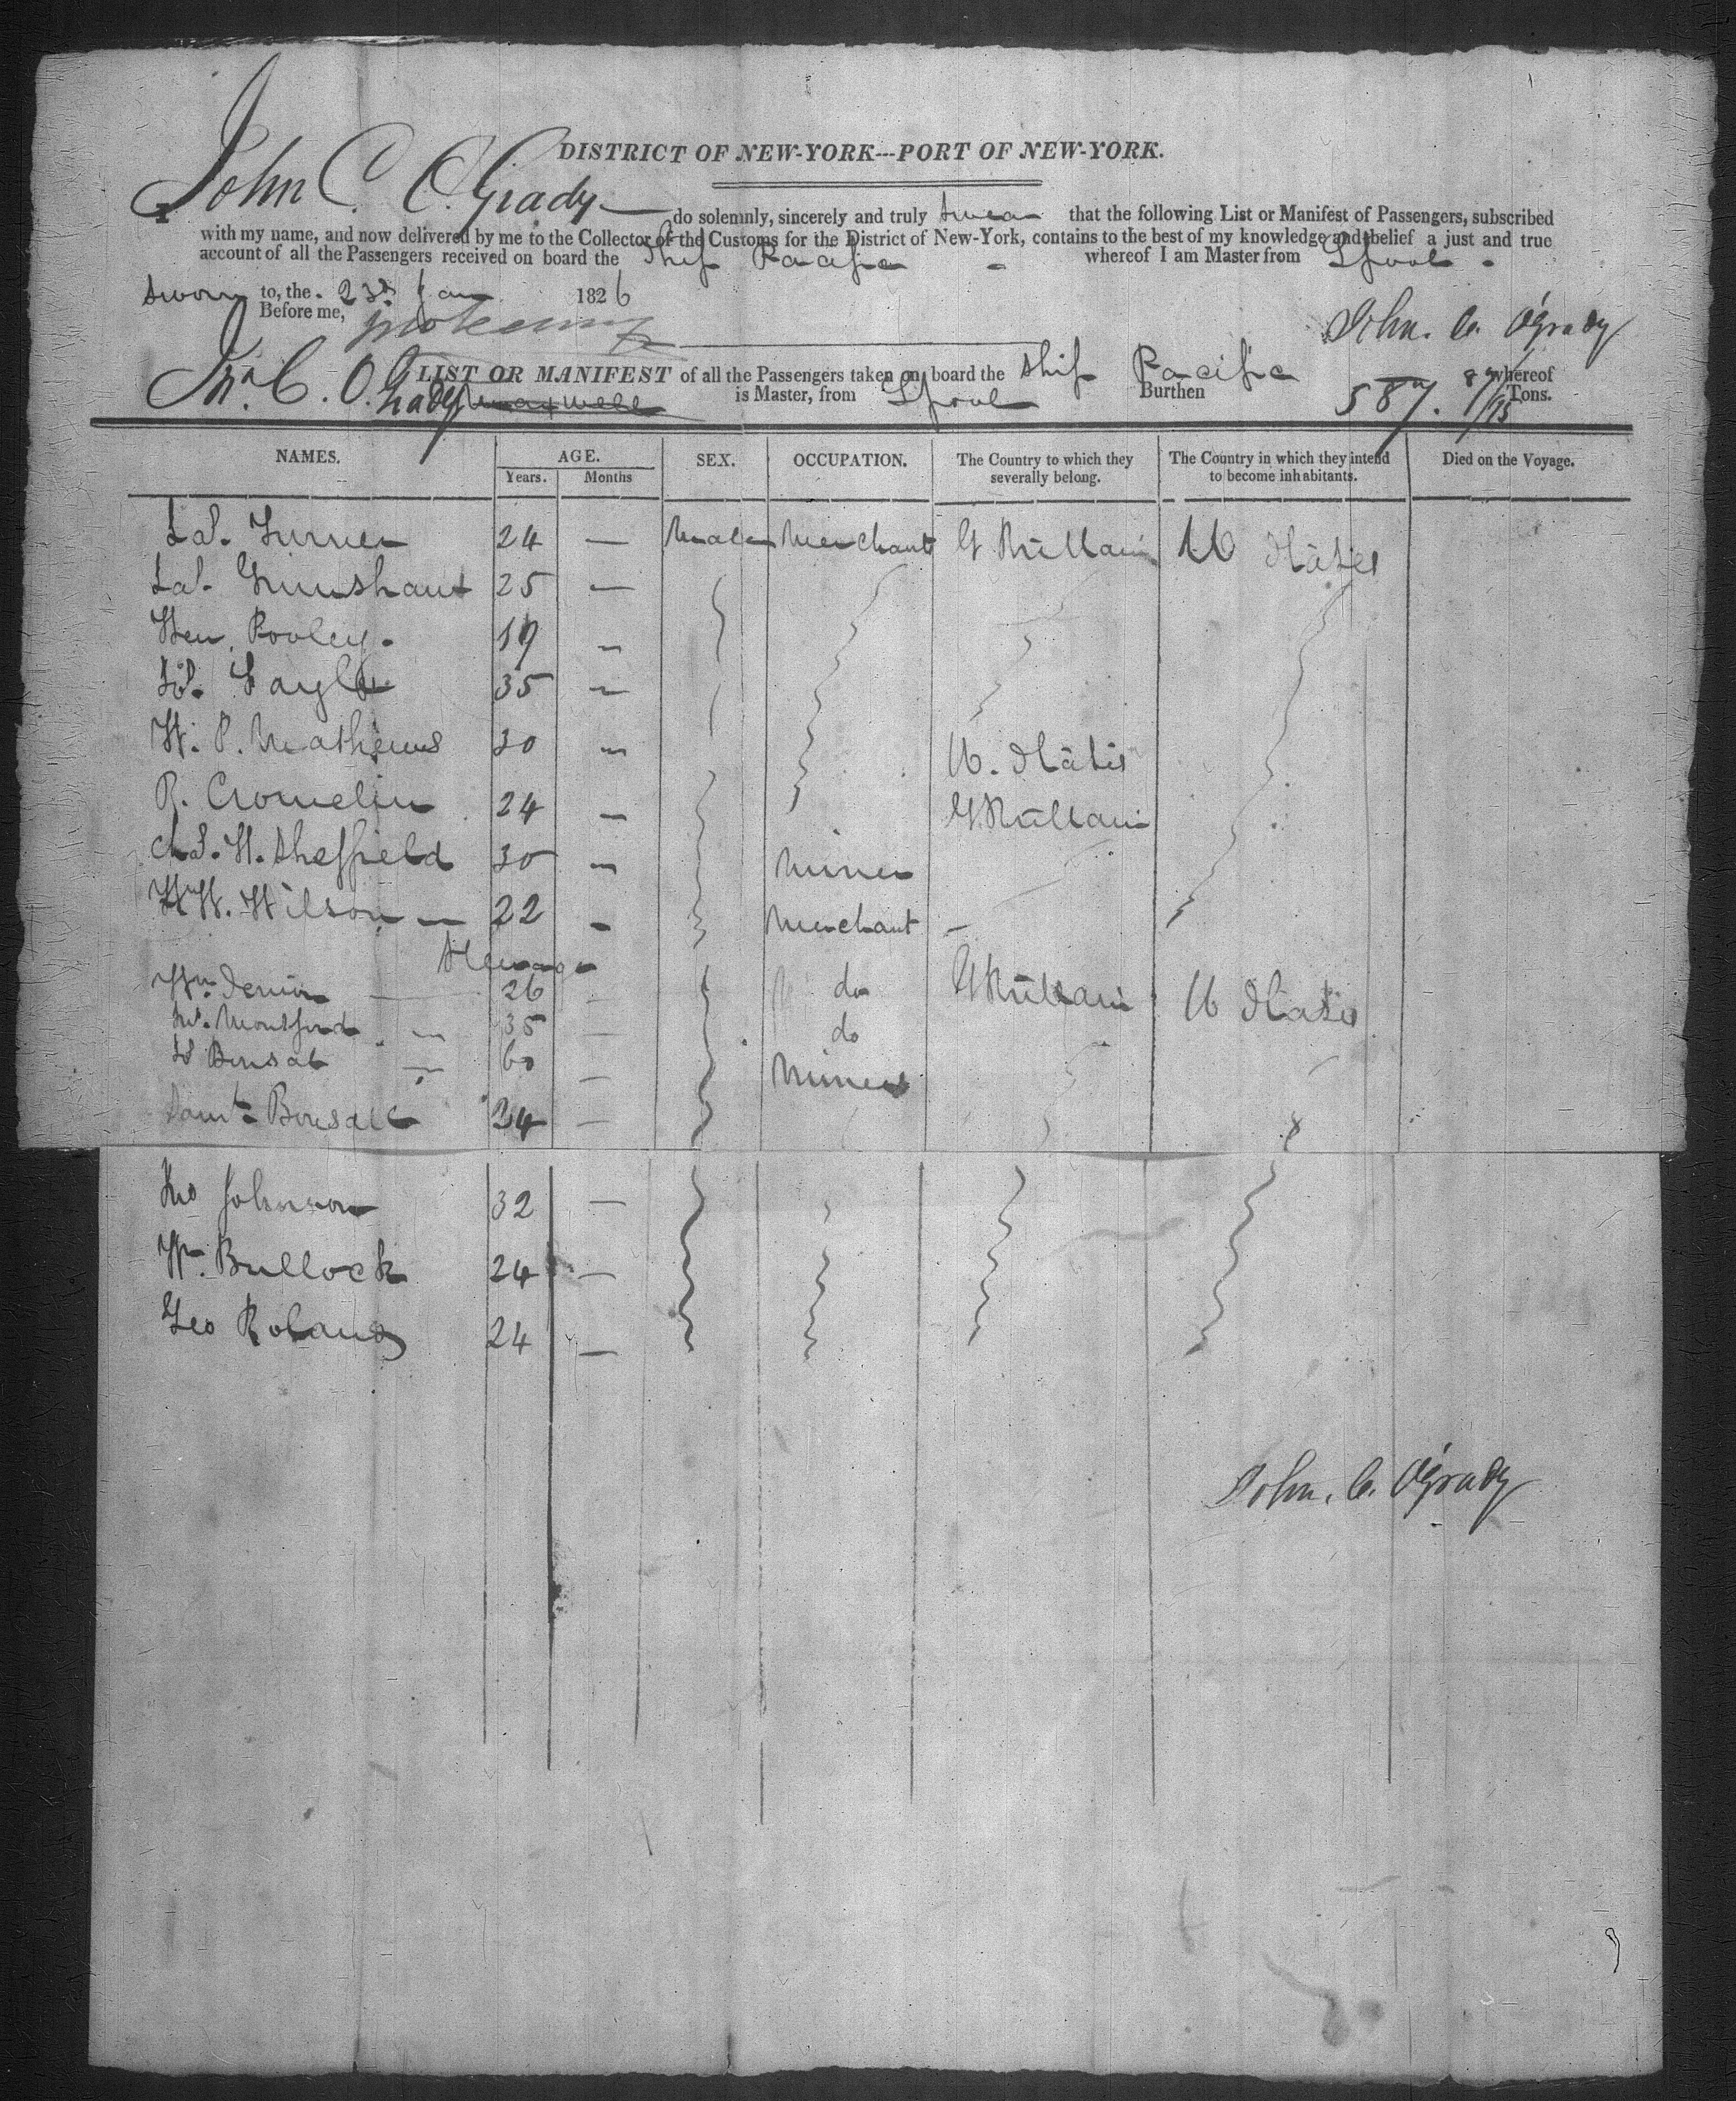 DISTRICT OF NEW-YORK---PORT OF NEW-YORK.
I John C. O'Grady do solemnly, sincerely and truly swear that the following List or Manifest of Passengers, subscribed
with my name, and now delivered by me to the Collector of the Customs for the District of New-York, contains to the best of my knowledge and belief a just and true
account of all the Passengers received on board the Ship Pacific whereof I am Master from Lpool
Sworn to, the 23d Jan 1826
Before me,
John. C. O'Grady
LIST OR MANIFEST of all the Passengers taken on board the Ship Pacific whereof
Jno C. O. Grady Maxwell is Master, from Lpool Burthen 587. 87/95 Tons.
NAMES. AGE. SEX. OCCUPATION. The Country to which they severally belong. The Country in which they intend to become inhabitants. Died on the Voyage.
Years. Months
Jas. Turner 24 — Male Merchant G Brittain U States
Jas. Grimshaw 25 —
Hen. Pooley. 19 "
Taylor 35 —
W. P. Mathews 30 " U. States
R. Cromelin 24 — G. Brittain
Chs. H. Sheffield 30 — Miner
W. Wilson — 22 - Merchant -
Steerage
Wm 26 do G Brittain U States
Montford 35 — do
Bonsal 60 — Miner
Saml Bonsall 24 —
Johnson 32 —
Wm. Bullock 24 —
Geo Roland 24 —
John. C. O'Grady